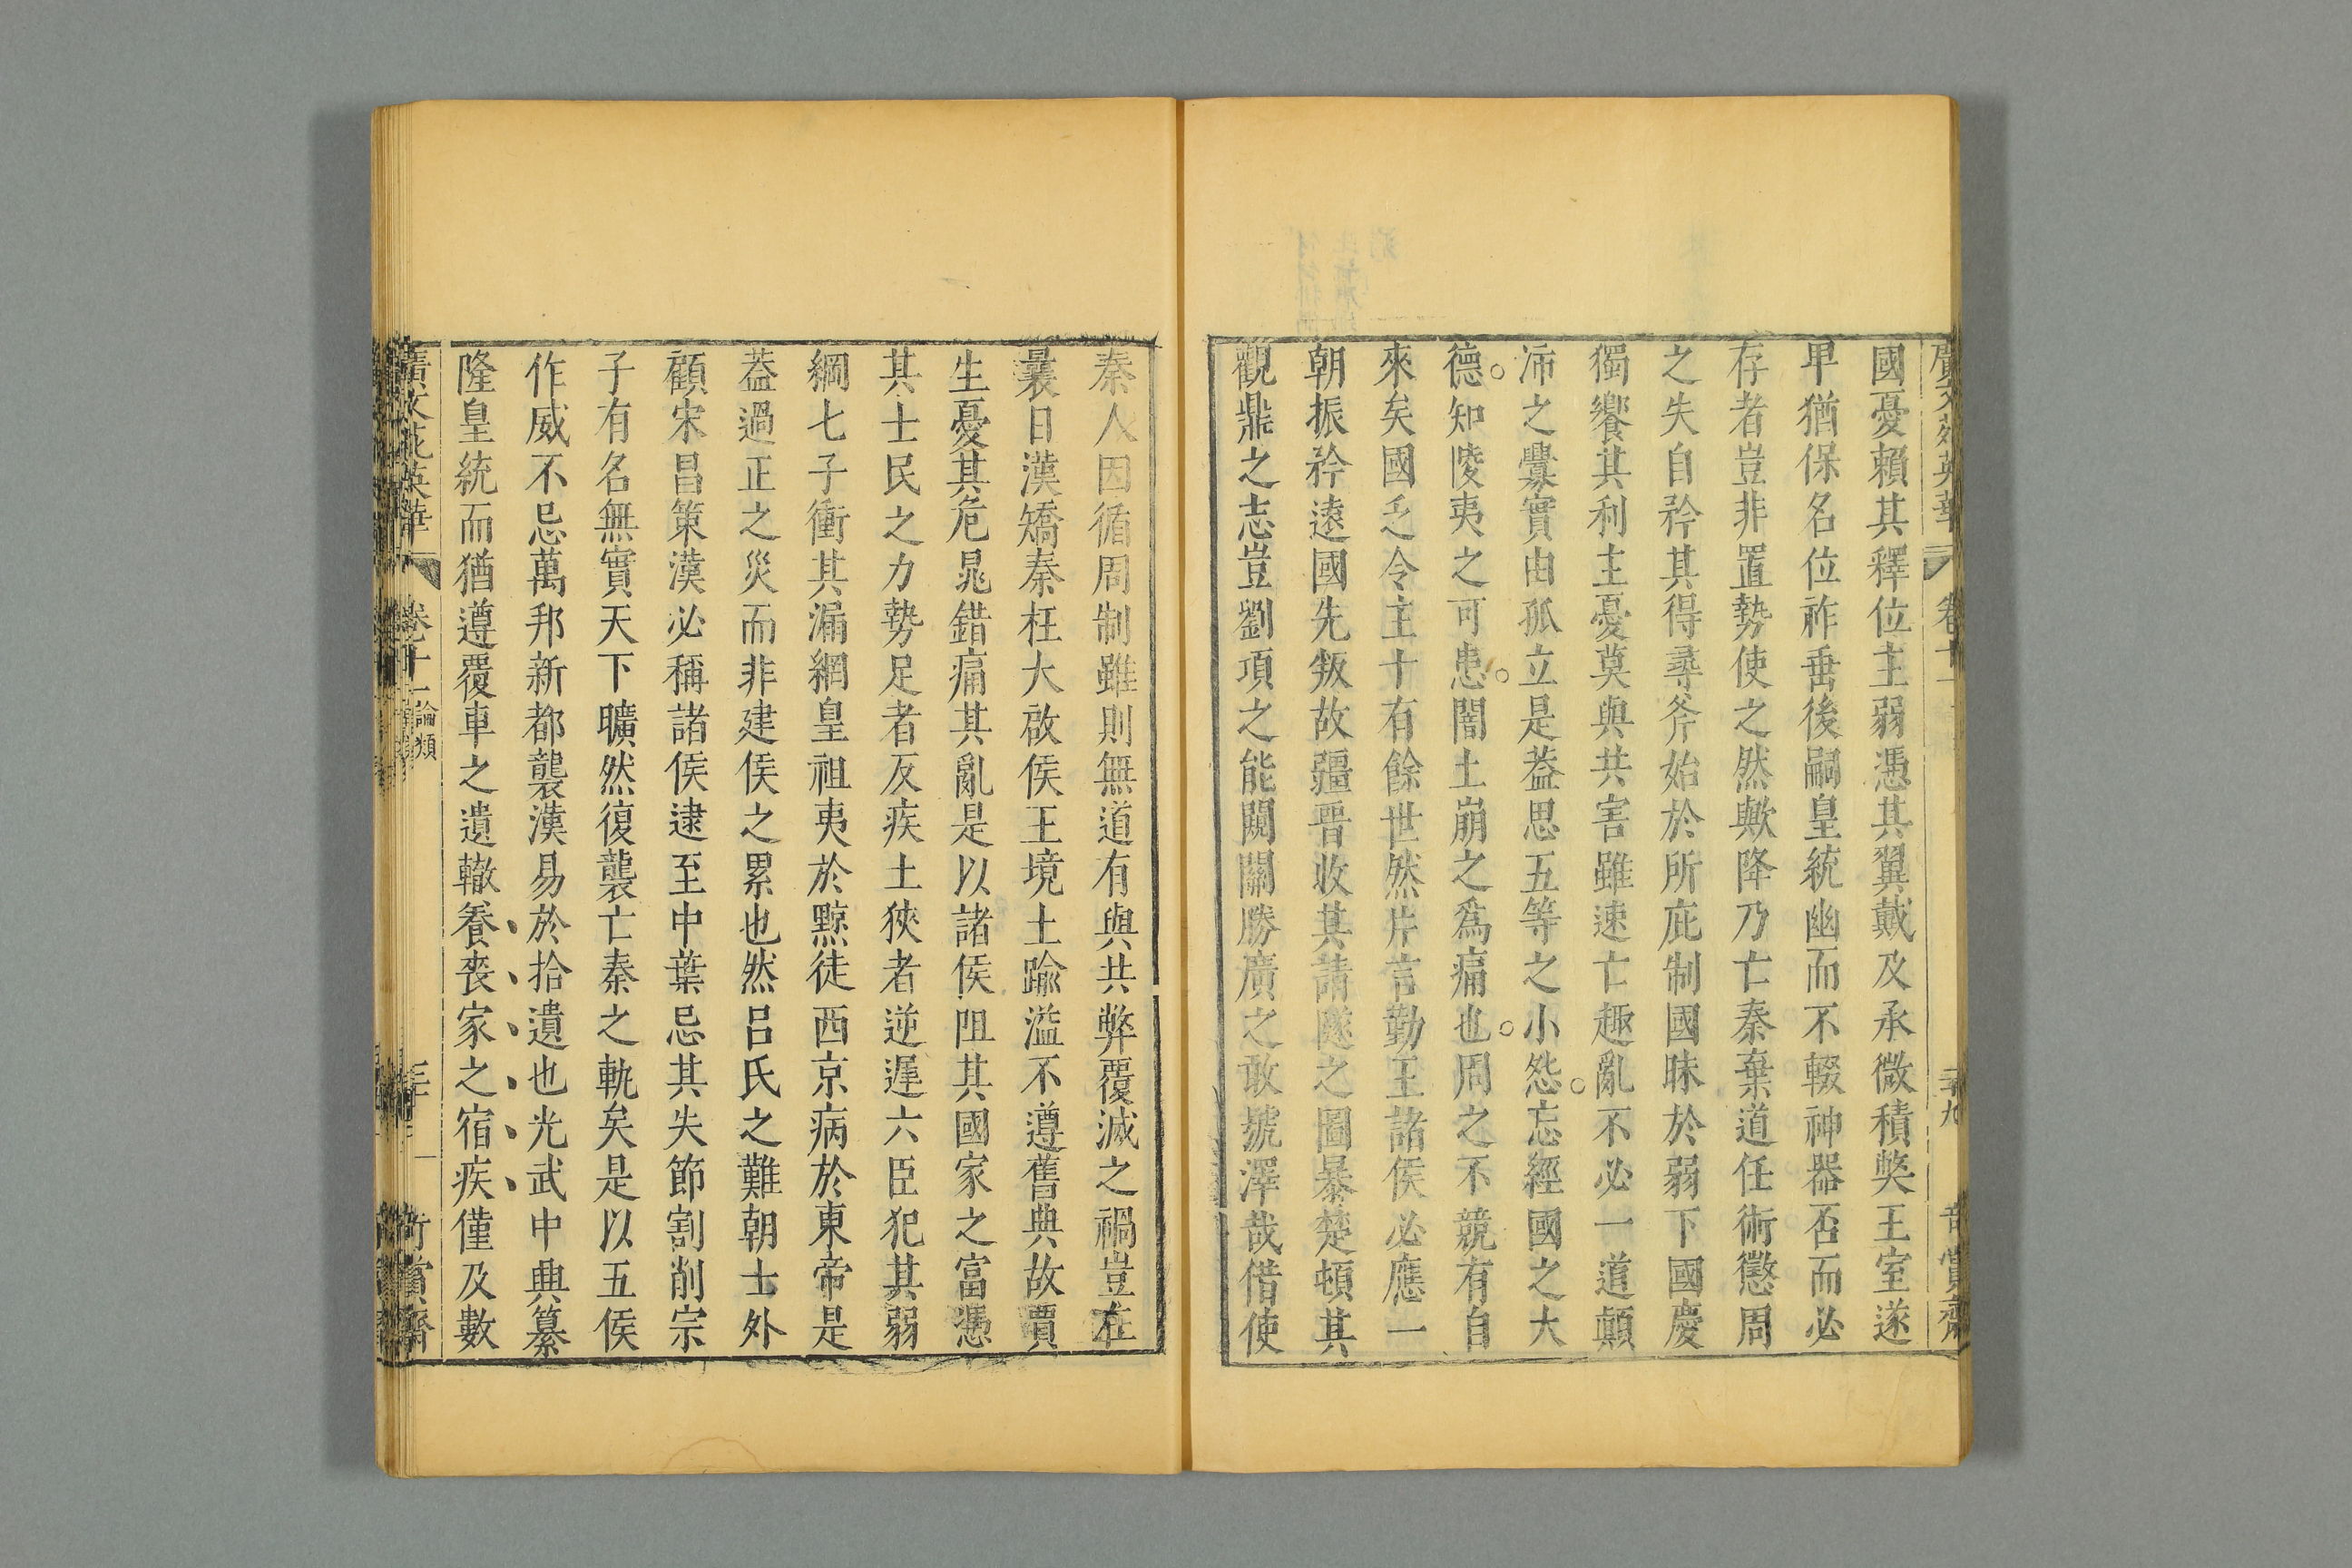 國憂賴其釋位主弱憑其翼戴及承微積獘王室遂
卑猶保名位祚垂後嗣皇統幽而不輟神器否而必
存者豈非置勢使之然歟降乃亡秦棄道任術懲周
之失自矜其得尋斧始於所庇制國昧於弱下國慶
獨饗其利主憂莫與共害雖速亡趣亂不必一道顛
沛之釁實由孤立是葢思五等之小怨忘經國之大
德知陵夷之可患闇土崩之爲痛也周之不競有自
來矣國乏令主十有餘世然片言勤王諸侯必應一
朝振矜遠國先叛故疆晋收其請隧之圖暴楚頓其
觀鼎之志豈劉項之能闚關勝廣之敢號澤哉借使
秦人因循周制雖則無道有與共弊覆滅之禍豈在
曩日漢矯秦枉大啟侯王境土踰溢不遵舊典故賈
生憂其危晁錯痛其亂是以諸侯阻其國家之富憑
其士民之力勢足者反疾土狹者逆遲六臣犯其弱
綱七子衝其漏網皇祖夷於黥徒西京病於東帝是
葢過正之災而非建侯之累也然呂氏之難朝士外
顧宋昌策漢必稱諸侯逮至中葉忌其失節割削宗
子有名無實天下曠然復襲亡秦之軌矣是以五侯
作威不忌萬邦新都襲漢易於拾遺也光武中興纂
隆皇統而猶遵覆車之遺轍養喪家之宿疾僅及數
廣文苑英華 卷十一 論類